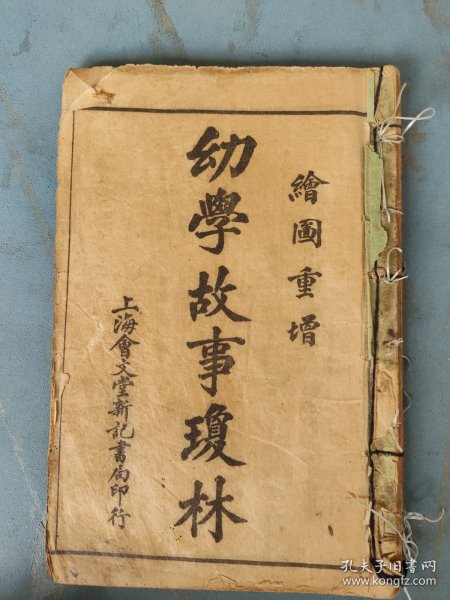 繪圖重增
幼學故事瓊林
上海會文堂新記書局印行
孔夫子旧书网
www.kongfz.com